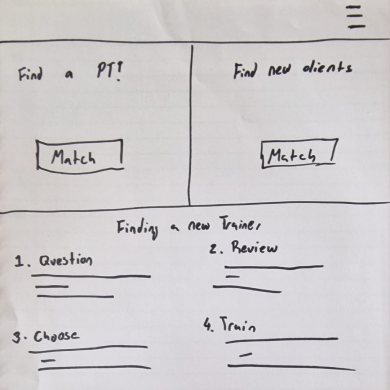 Find a PT!
Find new clients
Match
Match
Finding a new Trainer
1. Question
2. Review
3. Choose
4. Train